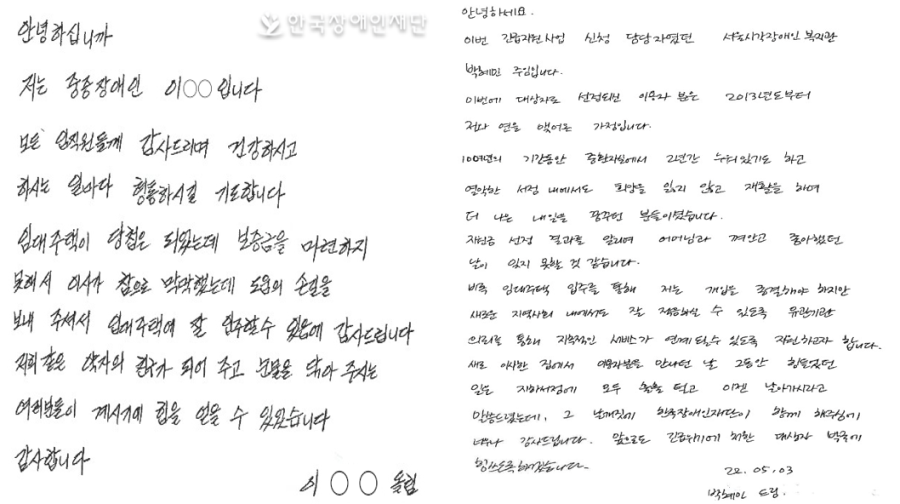 한국장애인재단
안녕하십니까
저는 중증장애인 이○○입니다
모든 임직원들게 감사드리며 건강하시고
하시는 일마다 형통하시길 기도합니다
임대주택이 당첨은 되었는데 보증금을 마련하지
못해서 이사가 참으로 막막했는데 도움의 손길을
보내 주셔서 임대주택에 잘 입주할수 있음에 감사드립니다
저희같은 약자의 친구가 되어 주고 눈물을 닦아 주시는
여러분들이 계시기에 힘을 얻을 수 있었습니다
감사합니다
이 ○ ○ 올림
안녕하세요.
이번 긴급지원사업 신청 담당자였던 서울시각장애인복지관
박혜민 주임입니다.
이번에 대상자로 선정되신 이용자 분은 2013년도부터
저와 연을 맺어온 가정입니다.
10여년의 기간동안 중환자실에서 2년간 누워있기도 하고
열악한 서정 내에서도 희망을 잃지 않고 재활을 하며
더 나은 내일을 꿈꾸던 분들이셨습니다.
지원금 선정 결과를 알리며 어머님과 껴안고 좋아했던
날이 잊지 못할 것 같습니다.
비록 임대주택 입주를 통해 저는 개입을 종결해야 하지만
새로운 지역사회 내에서도 잘 적응하실 수 있도록 유관기관
의뢰를 통해 지속적인 서비스가 연계될수 있도록 지원하고자 합니다.
새로 이사한 집에서 이용자분을 만나던 날 그동안 힘들었던
일은 지하서정에 모두 훌훌 털고 이젠 날아가시라고
말씀드렸는데, 그 날개짓에 한국장애인재단이 함께 해주심에
너무나 감사드립니다. 앞으로도 긴급위기에 처한 대상자 발굴에
힘쓰도록하겠습니다.
22. 05. 03
박혜민 드림.